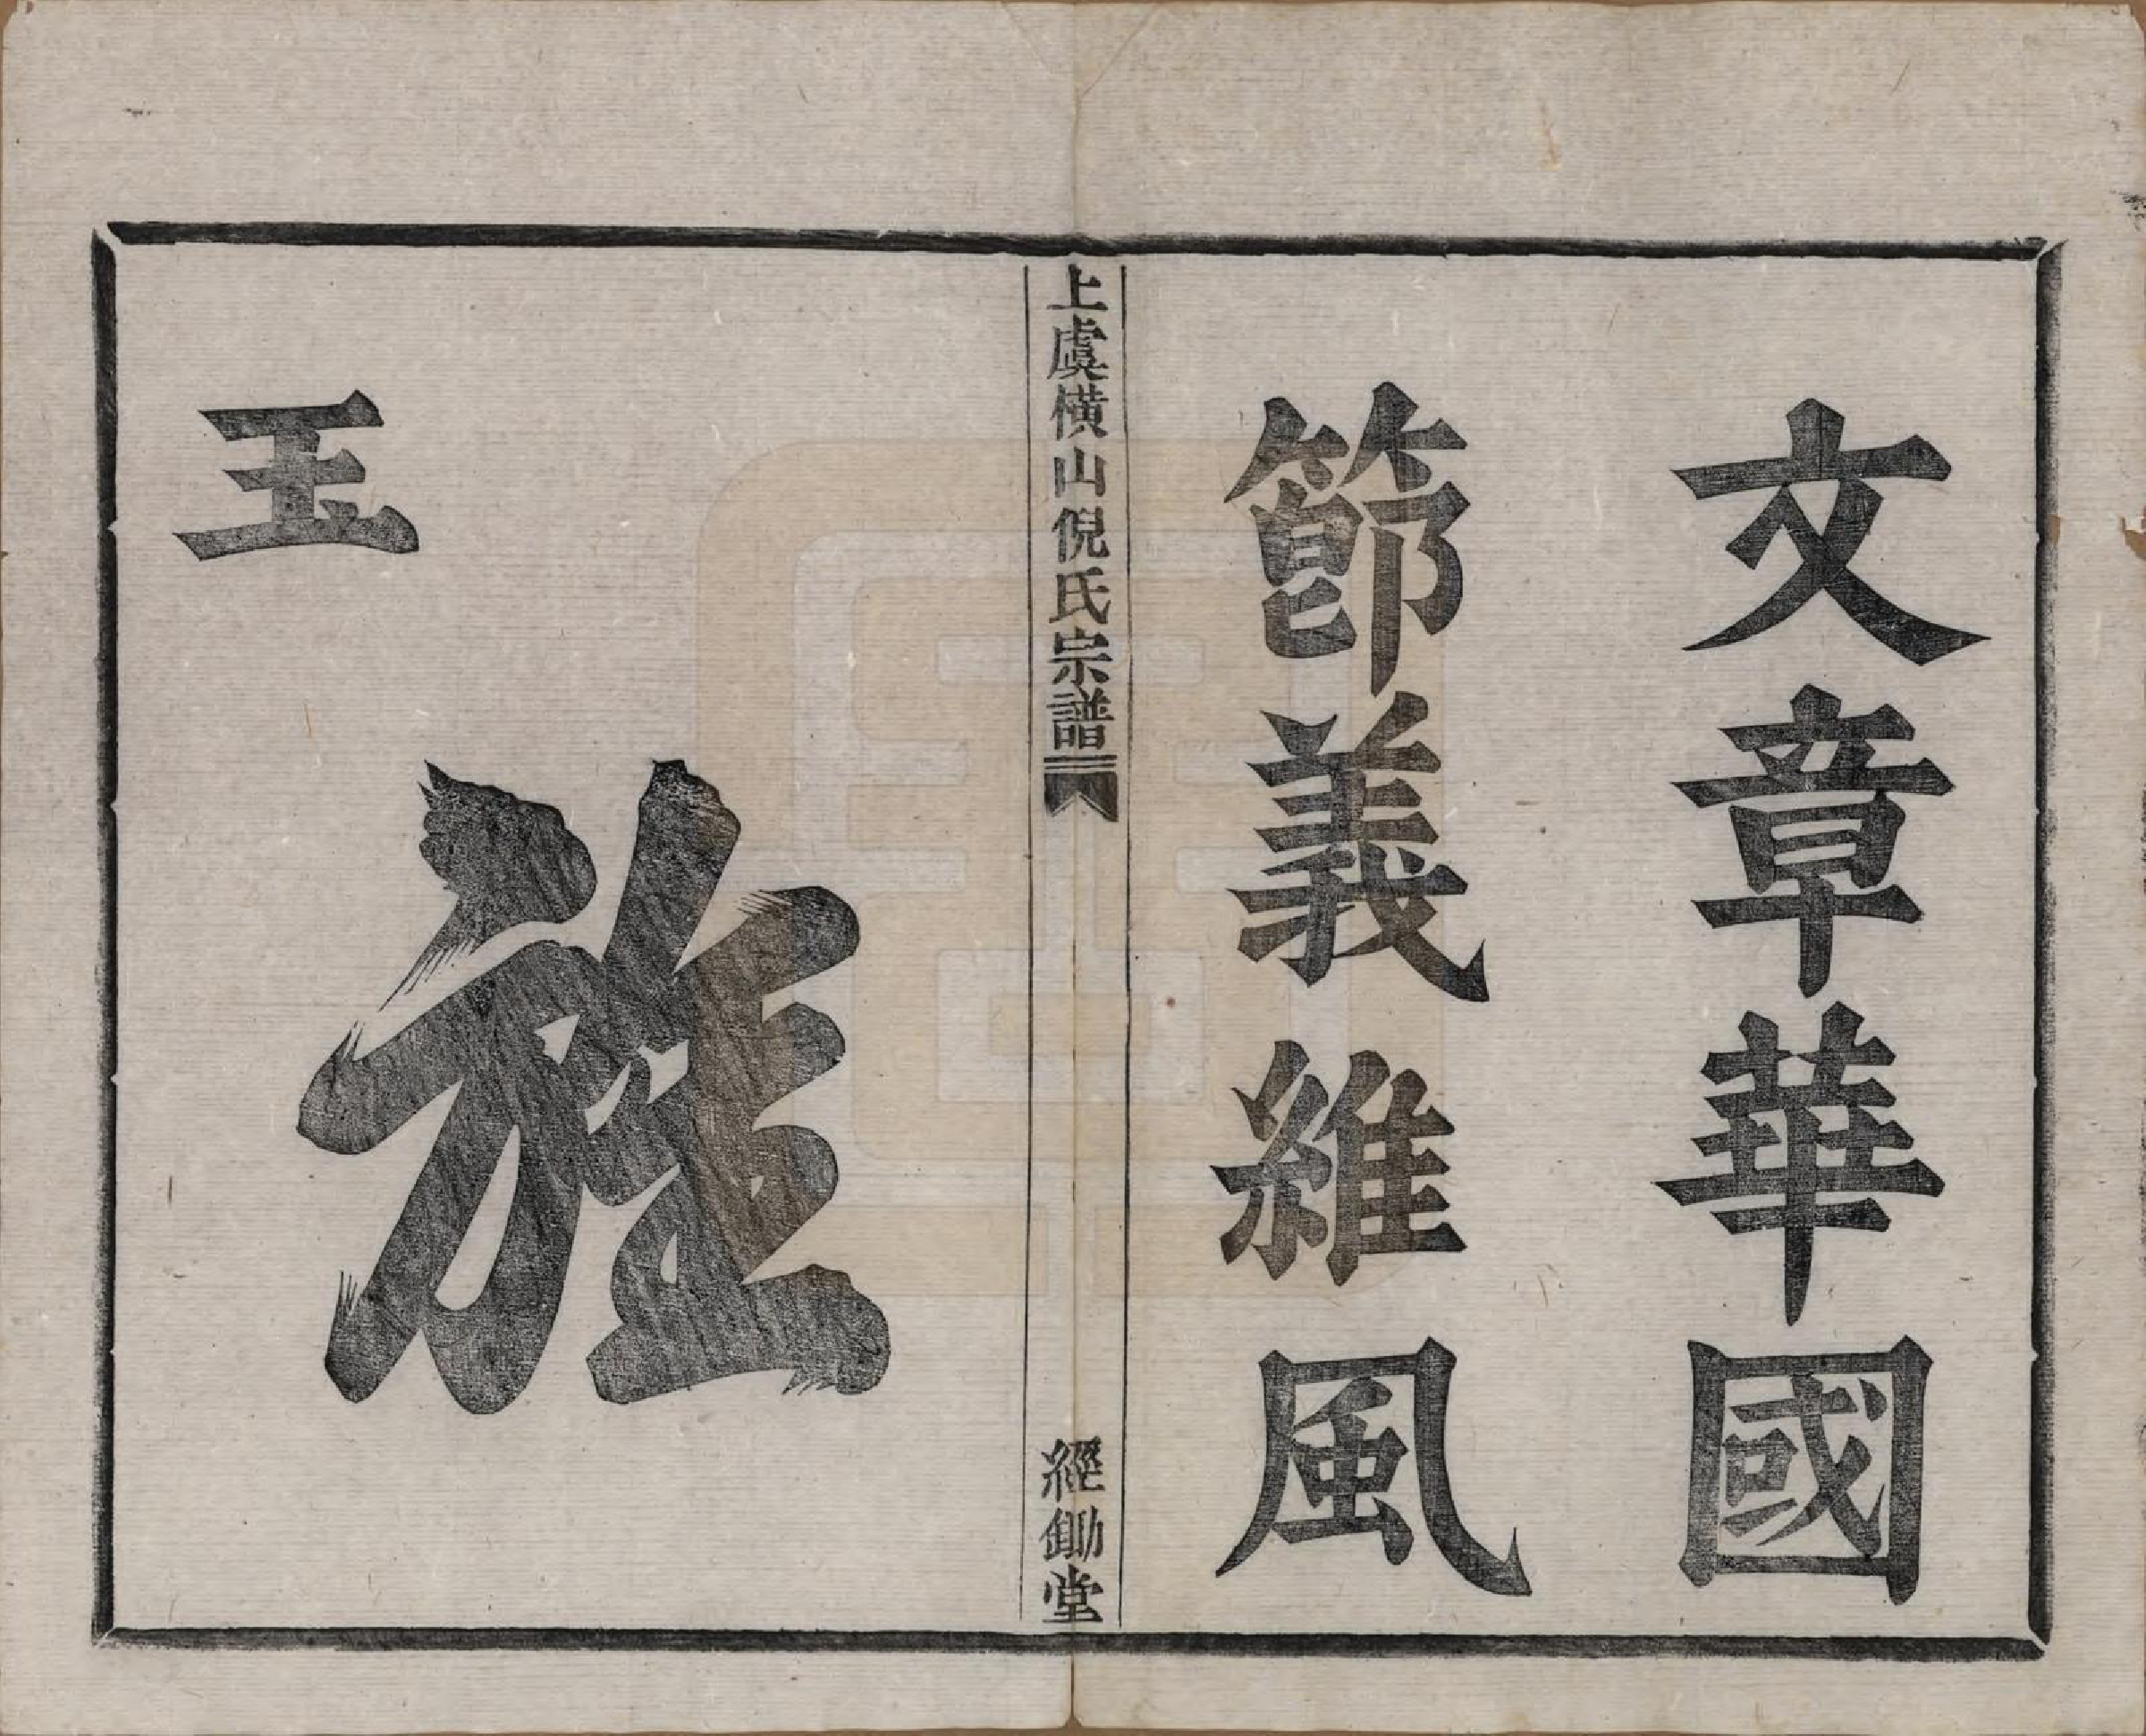 文章華國
節義維風
上虞橫山倪氏宗譜
經鋤堂
旌
玉